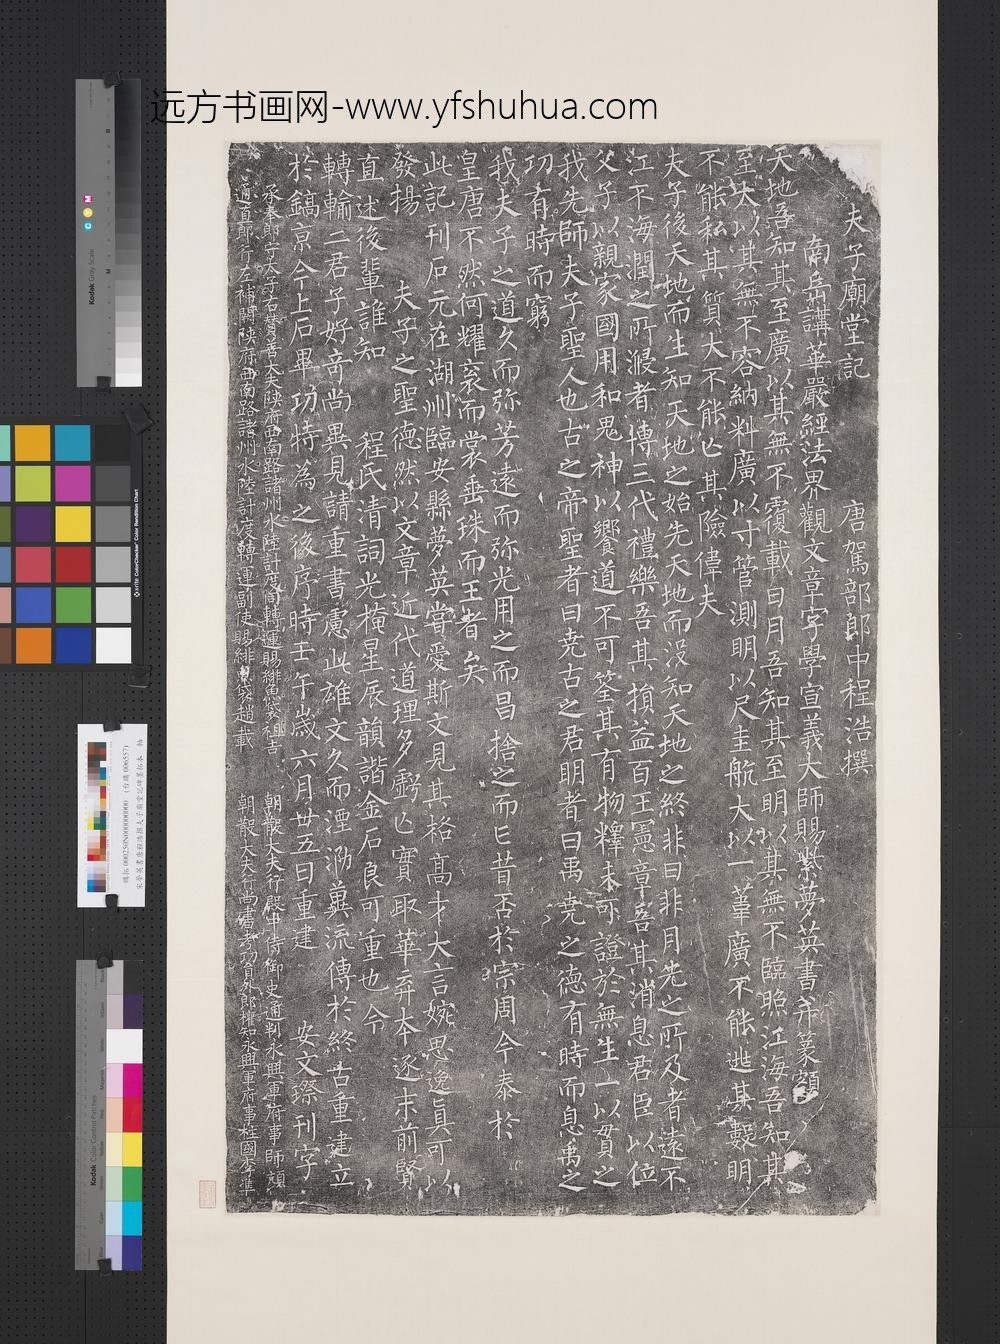 远方书画网-www.yfshuhua.com
夫子廟堂記 唐駕部郎中程浩撰
南岳講華嚴經法界觀文章字學宣義大師賜紫夢英書并篆額
天地吾知其至廣以其無不覆載日月吾知其至明以其無不臨照江海吾知其
至大以其無不容納料廣以寸管測明以尺圭航大以一葦廣不能逃其數明
不能私其質大不能亡其險偉夫
夫子後天地而生知天地之始先天地而没知天地之終非日非月光之所及者遠不
江不海潤之所浸者博三代禮樂吾其損益百王憲章吾其消息君臣以位
父子以親家國用和鬼神以饗道不可筌其有物釋未可證於無生一以貫之
我先師夫子聖人也古之帝聖者曰堯古之君明者曰禹堯之德有時而息禹之
功有時而窮
我夫子之道久而弥芳遠而弥光用之而昌捨之而亡昔否於宗周今泰於
皇唐不然何耀衮而裳垂珠而王者矣
此記刊石元在湖州臨安縣夢英嘗愛斯文見其格高才大言婉思逸真可以
發揚 夫子之聖德然以文章近代道理多虧亡實取華弃本逐末前賢
直述後輩誰知 程氏清詞光掩星辰韻諧金石良可重也今
轉輸二君子好奇尚異見請重書慮此雄文久而湮泐冀流傳於終古重建立
於鎬京今上石畢功特為之後序時壬午歲六月廿五日重建 安文璨刊字
承奉郎守太子右贊善大夫陝府西南路諸州水陸計度同轉運賜緋魚袋 朝散大夫行殿中侍御史通判永興軍府事師頏
通直郎行左補闕陝府西南路諸州水陸計度轉運副使賜緋魚袋趙載 朝散大夫行尚書考功員外郎權知永興軍府事柱國李準
Kodak Gray Scale
x-rite ColorChecker Color Rendition Chart
宋夢英書唐程浩撰夫子廟堂記碑墨拓本 軸
購拓 000250N000000000 (台購 006557)
Kodak Color Control Patches